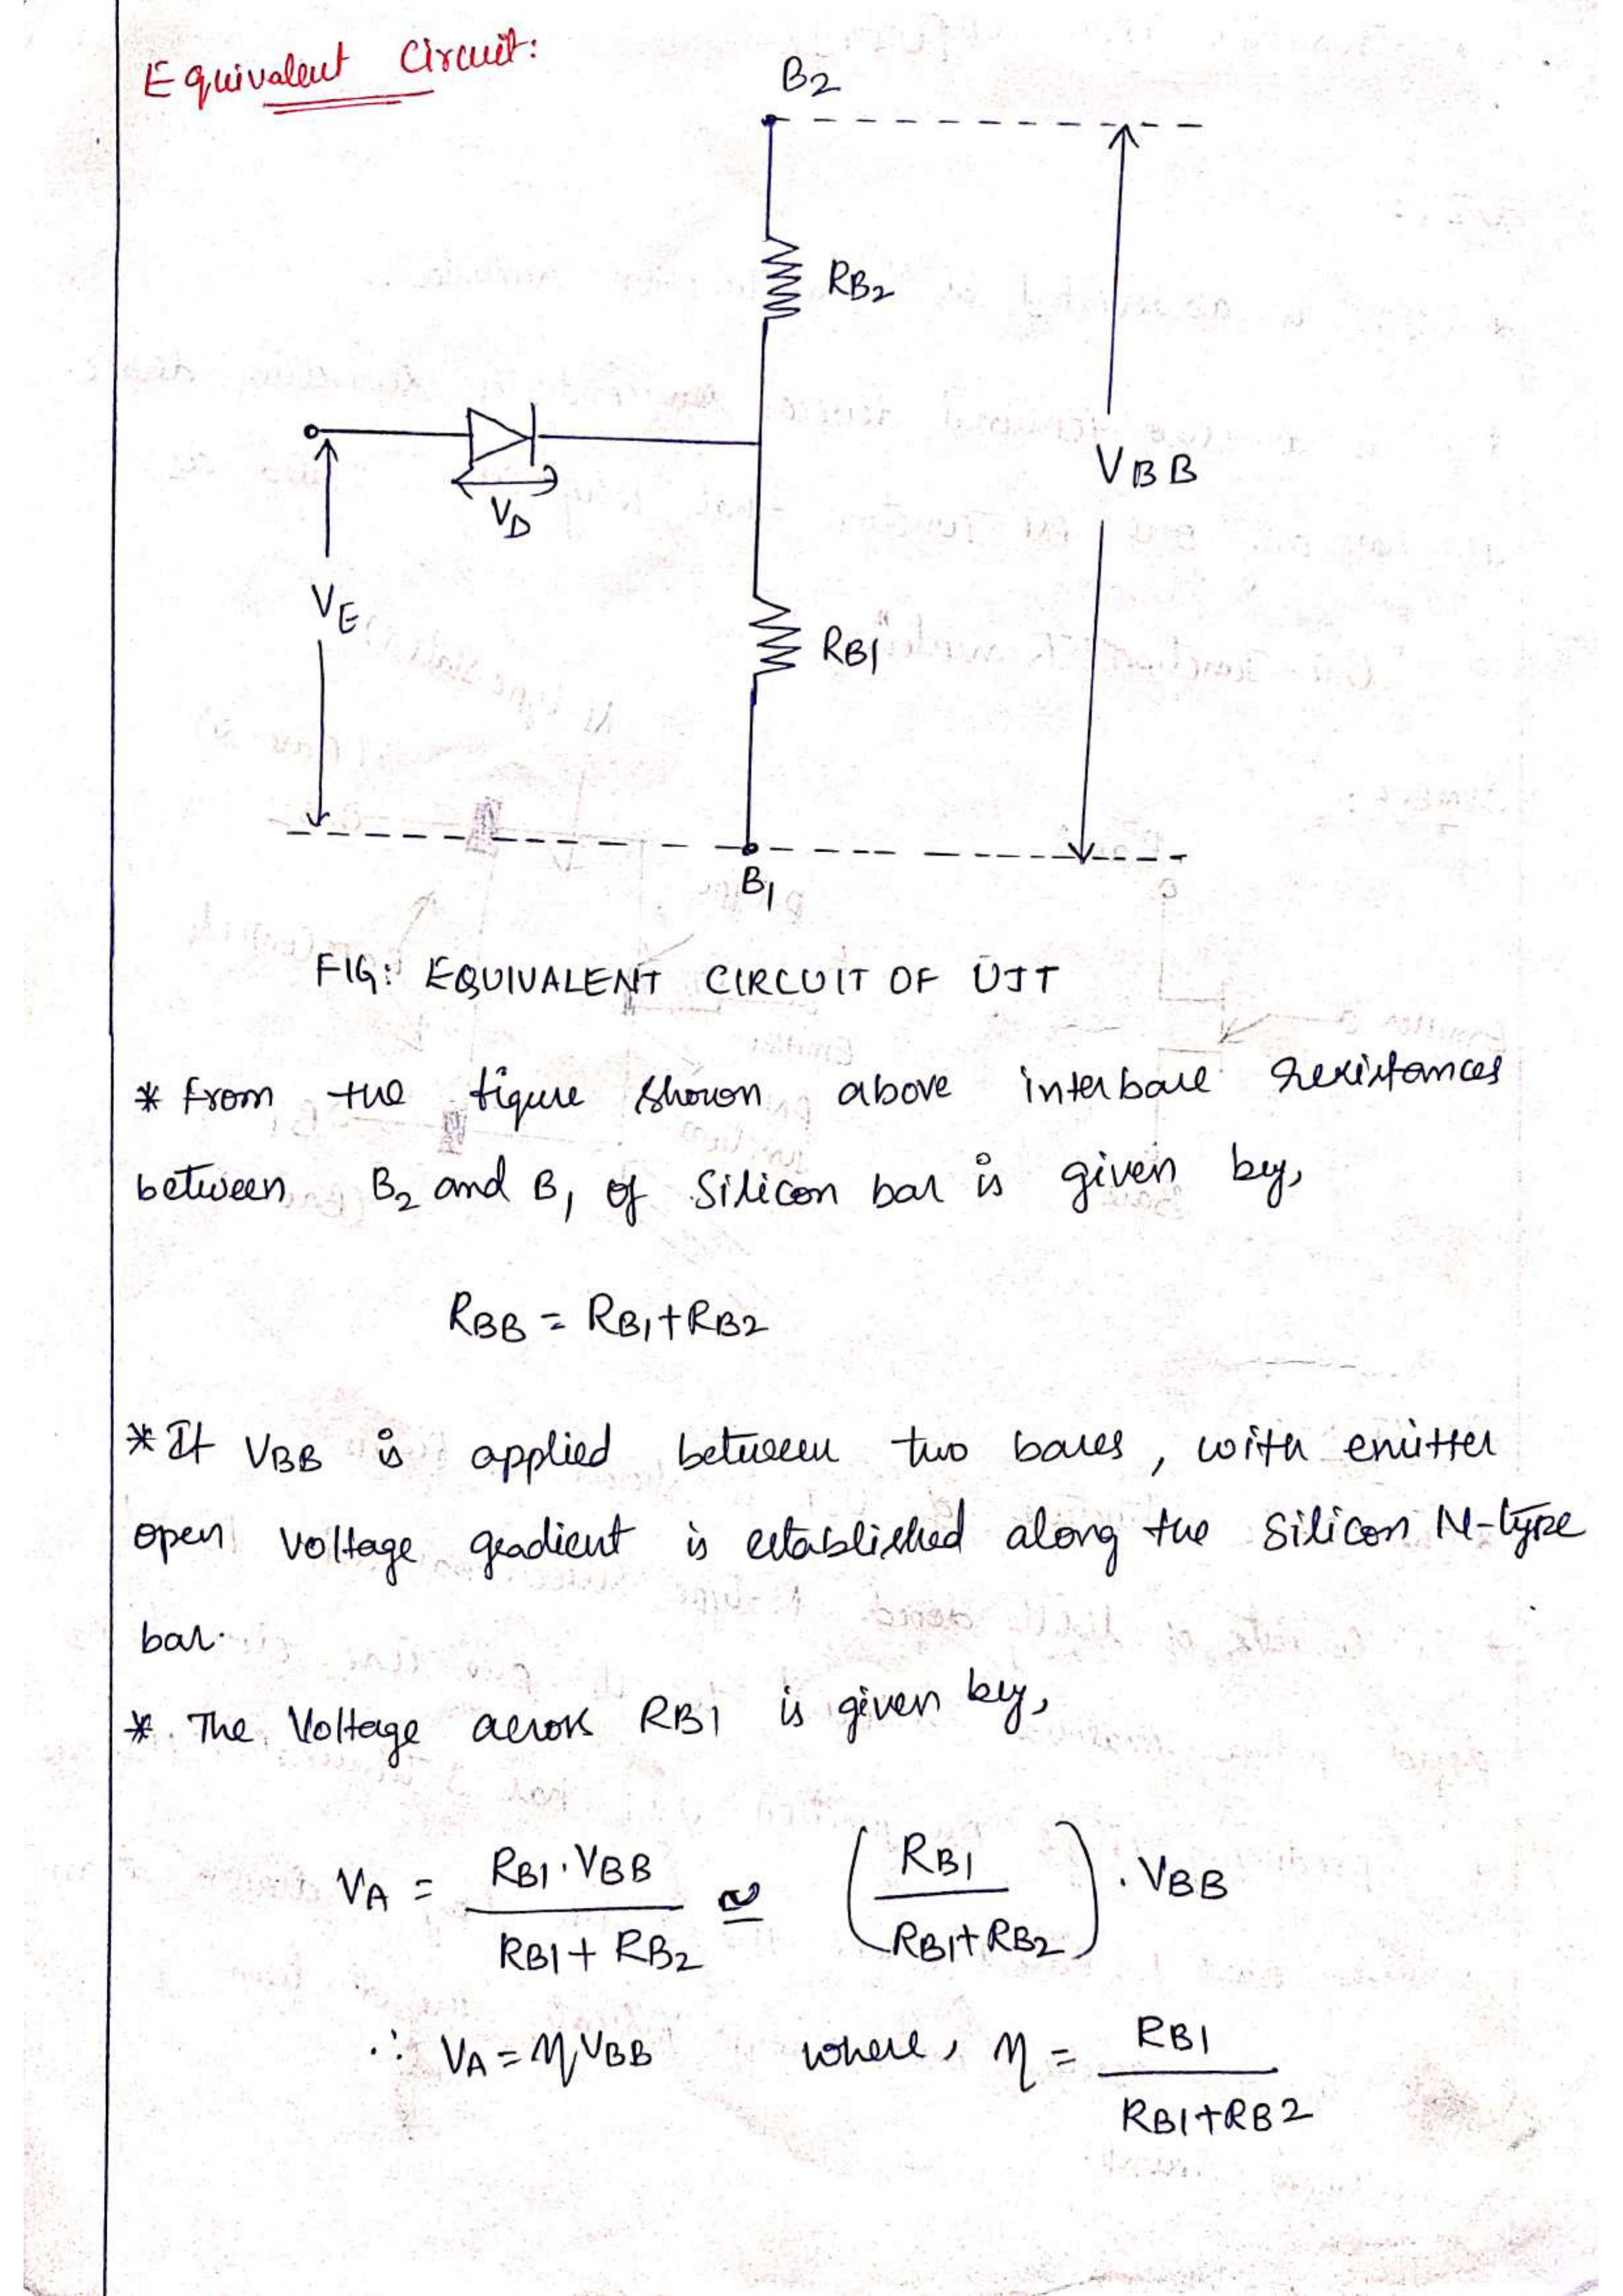 Equivalent Circuit:
B2
RB2
VD
VBB
VE
RB1
B1
FIG: EQUIVALENT CIRCUIT OF UJT
* from the figure shown above interbase resistances
between B2 and B1 of Silicon bar is given by,
RBB = RB1+RB2
* If VBB is applied between two bases, with emitter
open voltage gradient is established along the silicon N-type
bar.
* The Voltage across RB1 is given by,
VA = RB1·VBB / RB1+RB2 ≅ (RB1 / RB1+RB2) · VBB
∴ VA = ηVBB where, η = RB1 / RB1+RB2